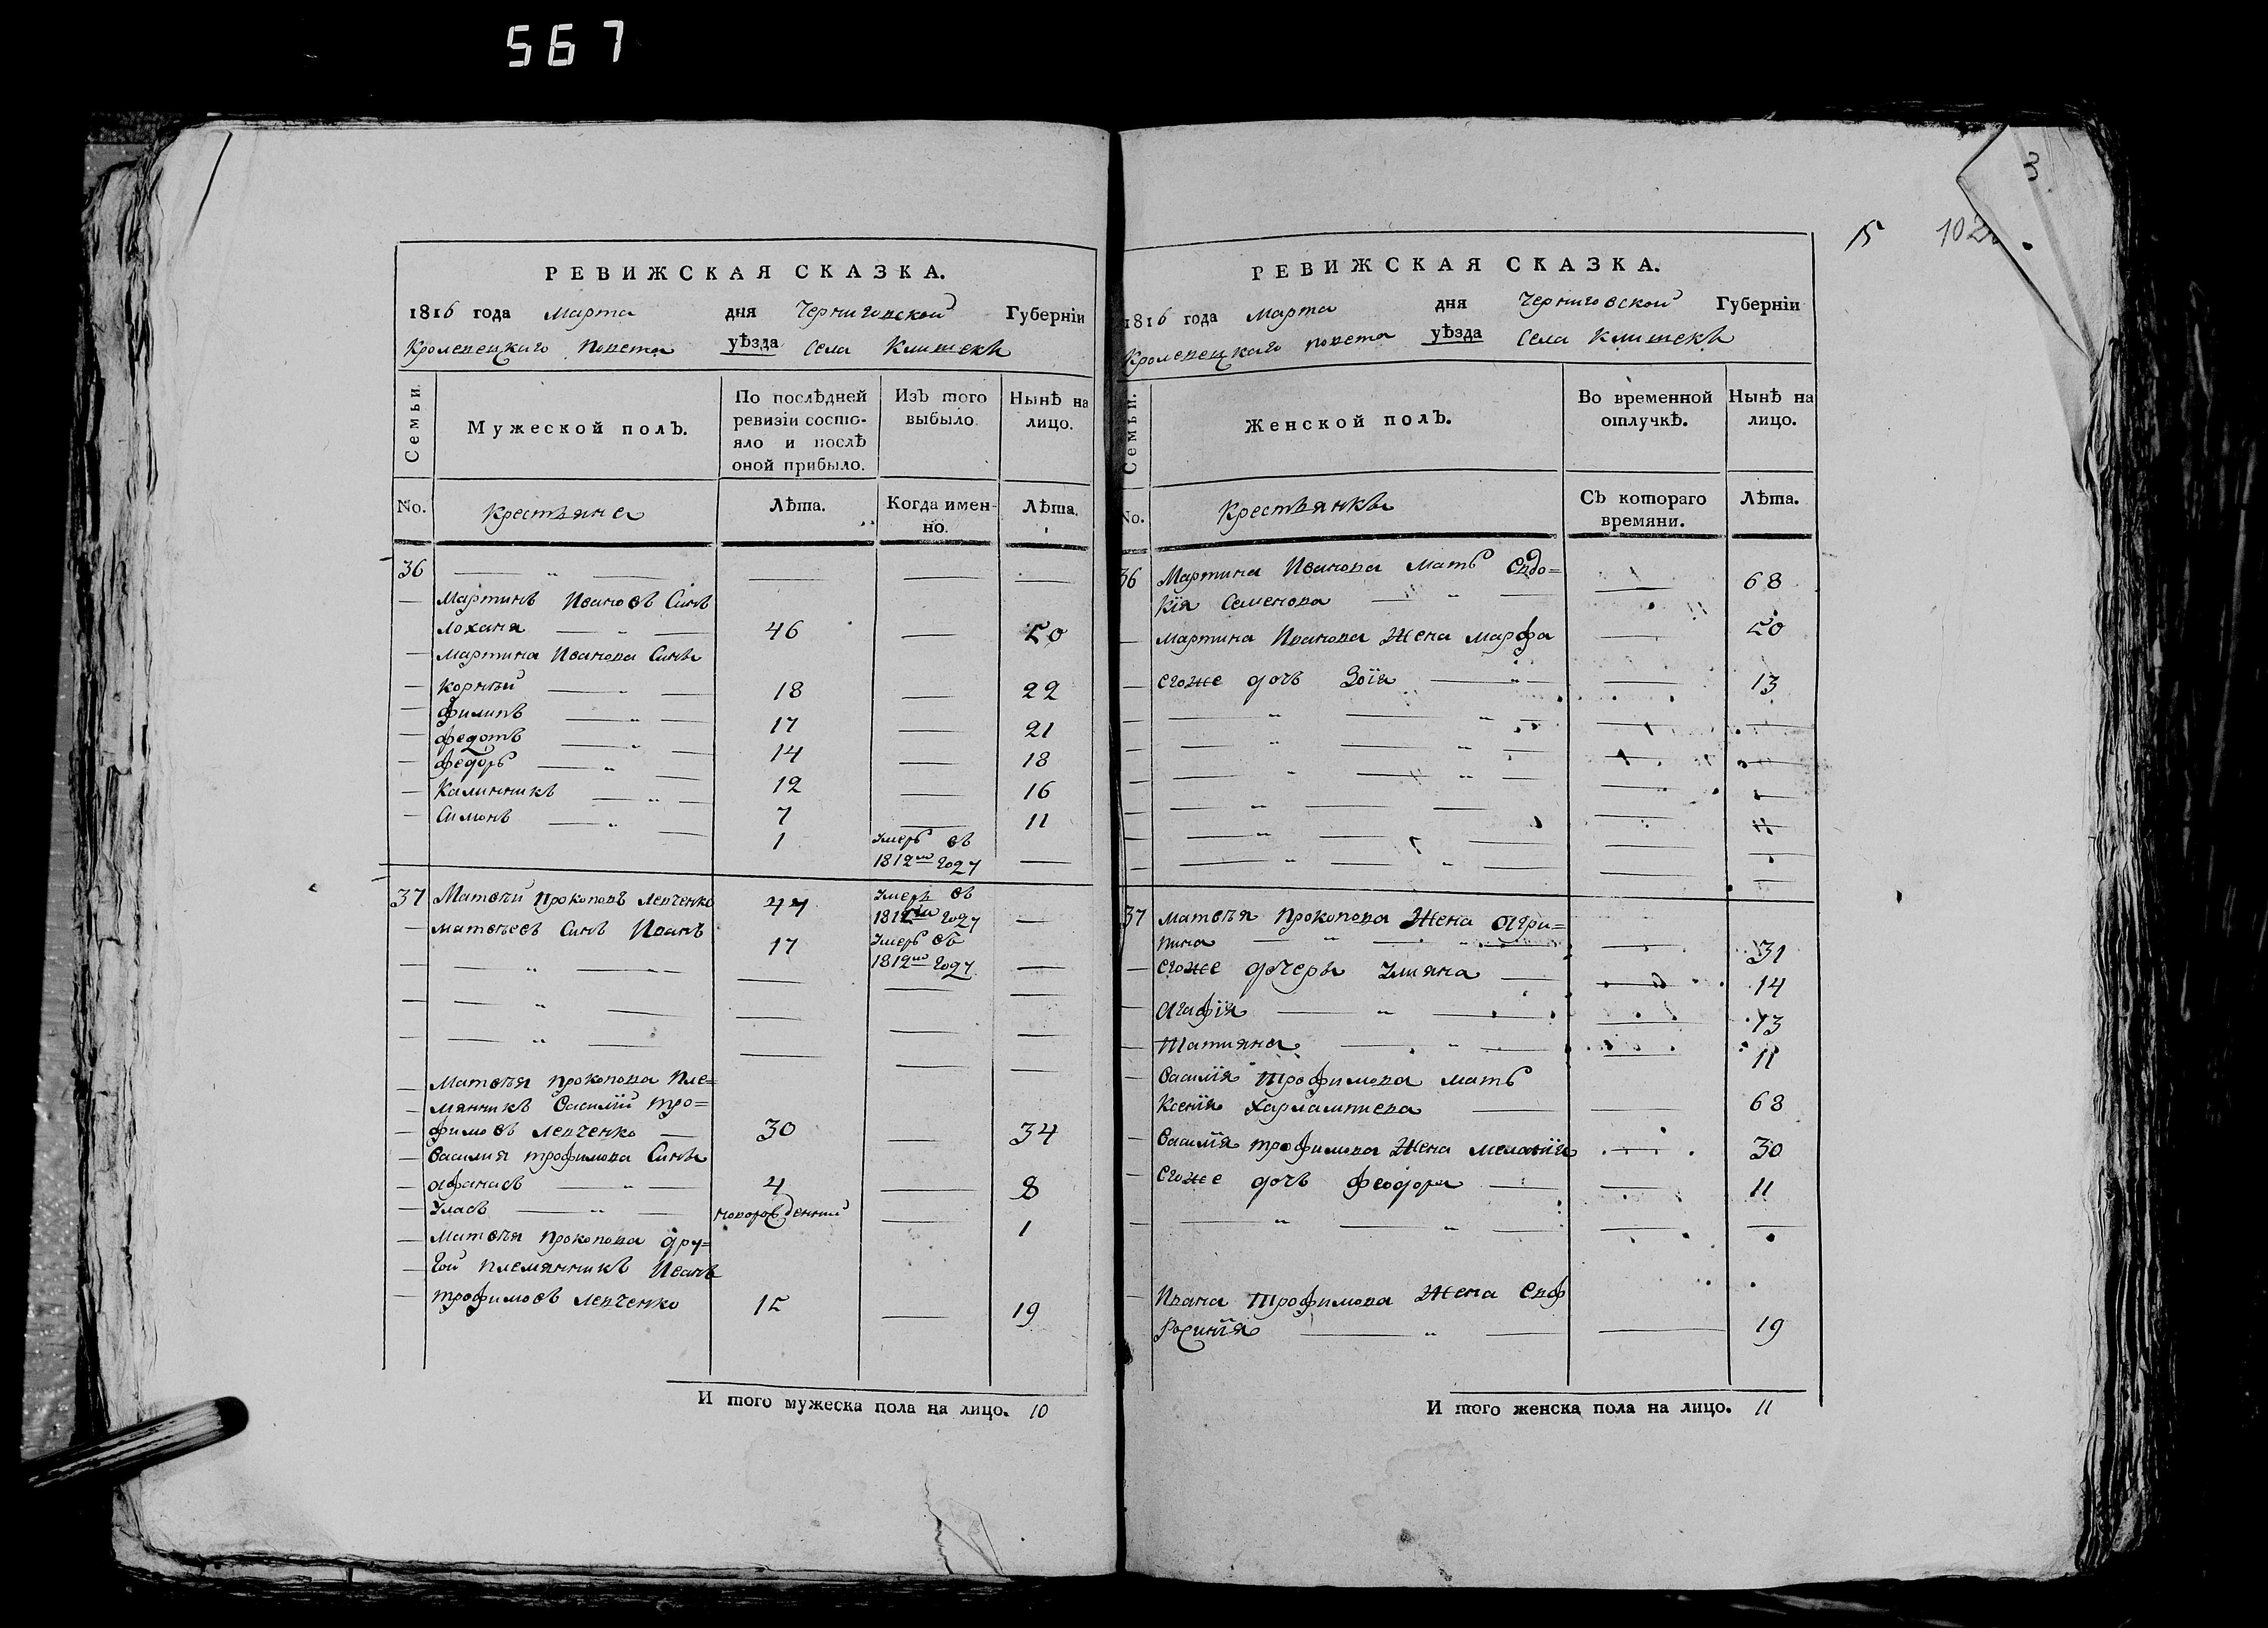 567
3
15 102
РЕВИЖСКАЯ СКАЗКА.
1816 года Марта дня Черниговской Губерніи
Кролевецкаго Повета уѣзда Села Клишекъ
Семьи.
Мужеской полъ.
По послѣдней ревизіи состояло и послѣ оной прибыло.
Изъ того выбыло.
Нынѣ на лицо.
No. Крестьяне Лѣта. Когда именно. Лѣта.
36
Мартинъ Ивановъ Синъ
Лоханя 46 50
Мартина Иванова Сины
Корнѣй 18 22
Филипъ 17 21
Федотъ 14 18
Федоръ 12 16
Калинникъ 7 11
Симонъ 1 Умеръ въ
1812мъ году
37 Матвѣй Прокоповъ Левченко 44 Умеръ въ
1812мъ году
Матвѣевъ Синъ Иванъ 17 Умеръ въ
1812мъ году
Матвѣя Прокопова Пле=
мянникъ Василій Тро=
фимовъ Левченко 30 34
Василия Трофимова Сины
Афанасъ 4 8
Уласъ новорожденний 1
Матвѣя Прокопова дру=
гой племянникъ Иванъ
Трофимовъ Левченко 15 19
И того мужеска пола на лицо. 10
РЕВИЖСКАЯ СКАЗКА.
1816 года Марта дня Черниговской Губерніи
Кролевецкаго Повета уѣзда Села Клишекъ
Семьи.
Женской полъ.
Во временной отлучкѣ.
Нынѣ на лицо.
No. Крестьянкы Съ котораго времяни. Лѣта.
36 Мартина Иванова Мать Евдо=
кія Семенова 68
Мартина Иванова Жена Марфа 50
Егоже дочь Зоія 13
37 Матвѣя Прокопова Жена Агри=
пина 31
Егоже дочеры Улияна 14
Агафія 13
Татияна 11
Василія Трофимова мать
Ксенія Харлампиева 68
Василія Трофимова Жена Меланія 30
Егоже дочь Феодора 11
Ивана Трофимова Жена Евф
росинія 19
И того женска пола на лицо. 11